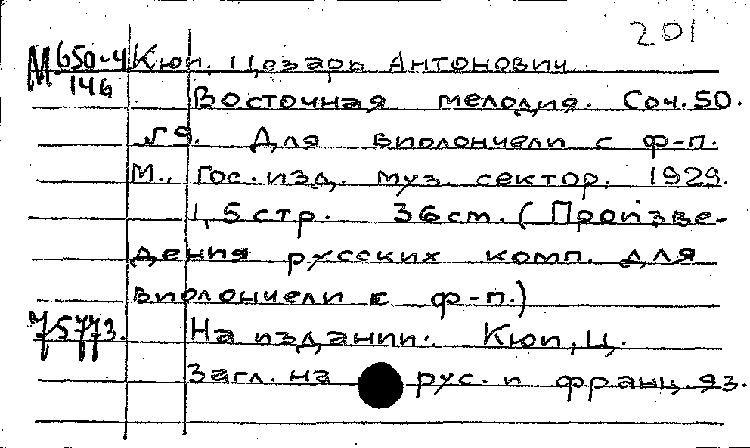 201
М 650-4 Кюи, Цезарь Антонович
146
Восточная мелодия. Соч. 50.
№ 9. Для виолончели с ф-п.
М., Гос. изд. муз. сектор. 1929.
1, 5 стр. 36 см. (Произве-
дения русских комп. для
виолончели с ф-п.)
На издании: Кюи, Ц.
Загл. на рус. и франц. яз.